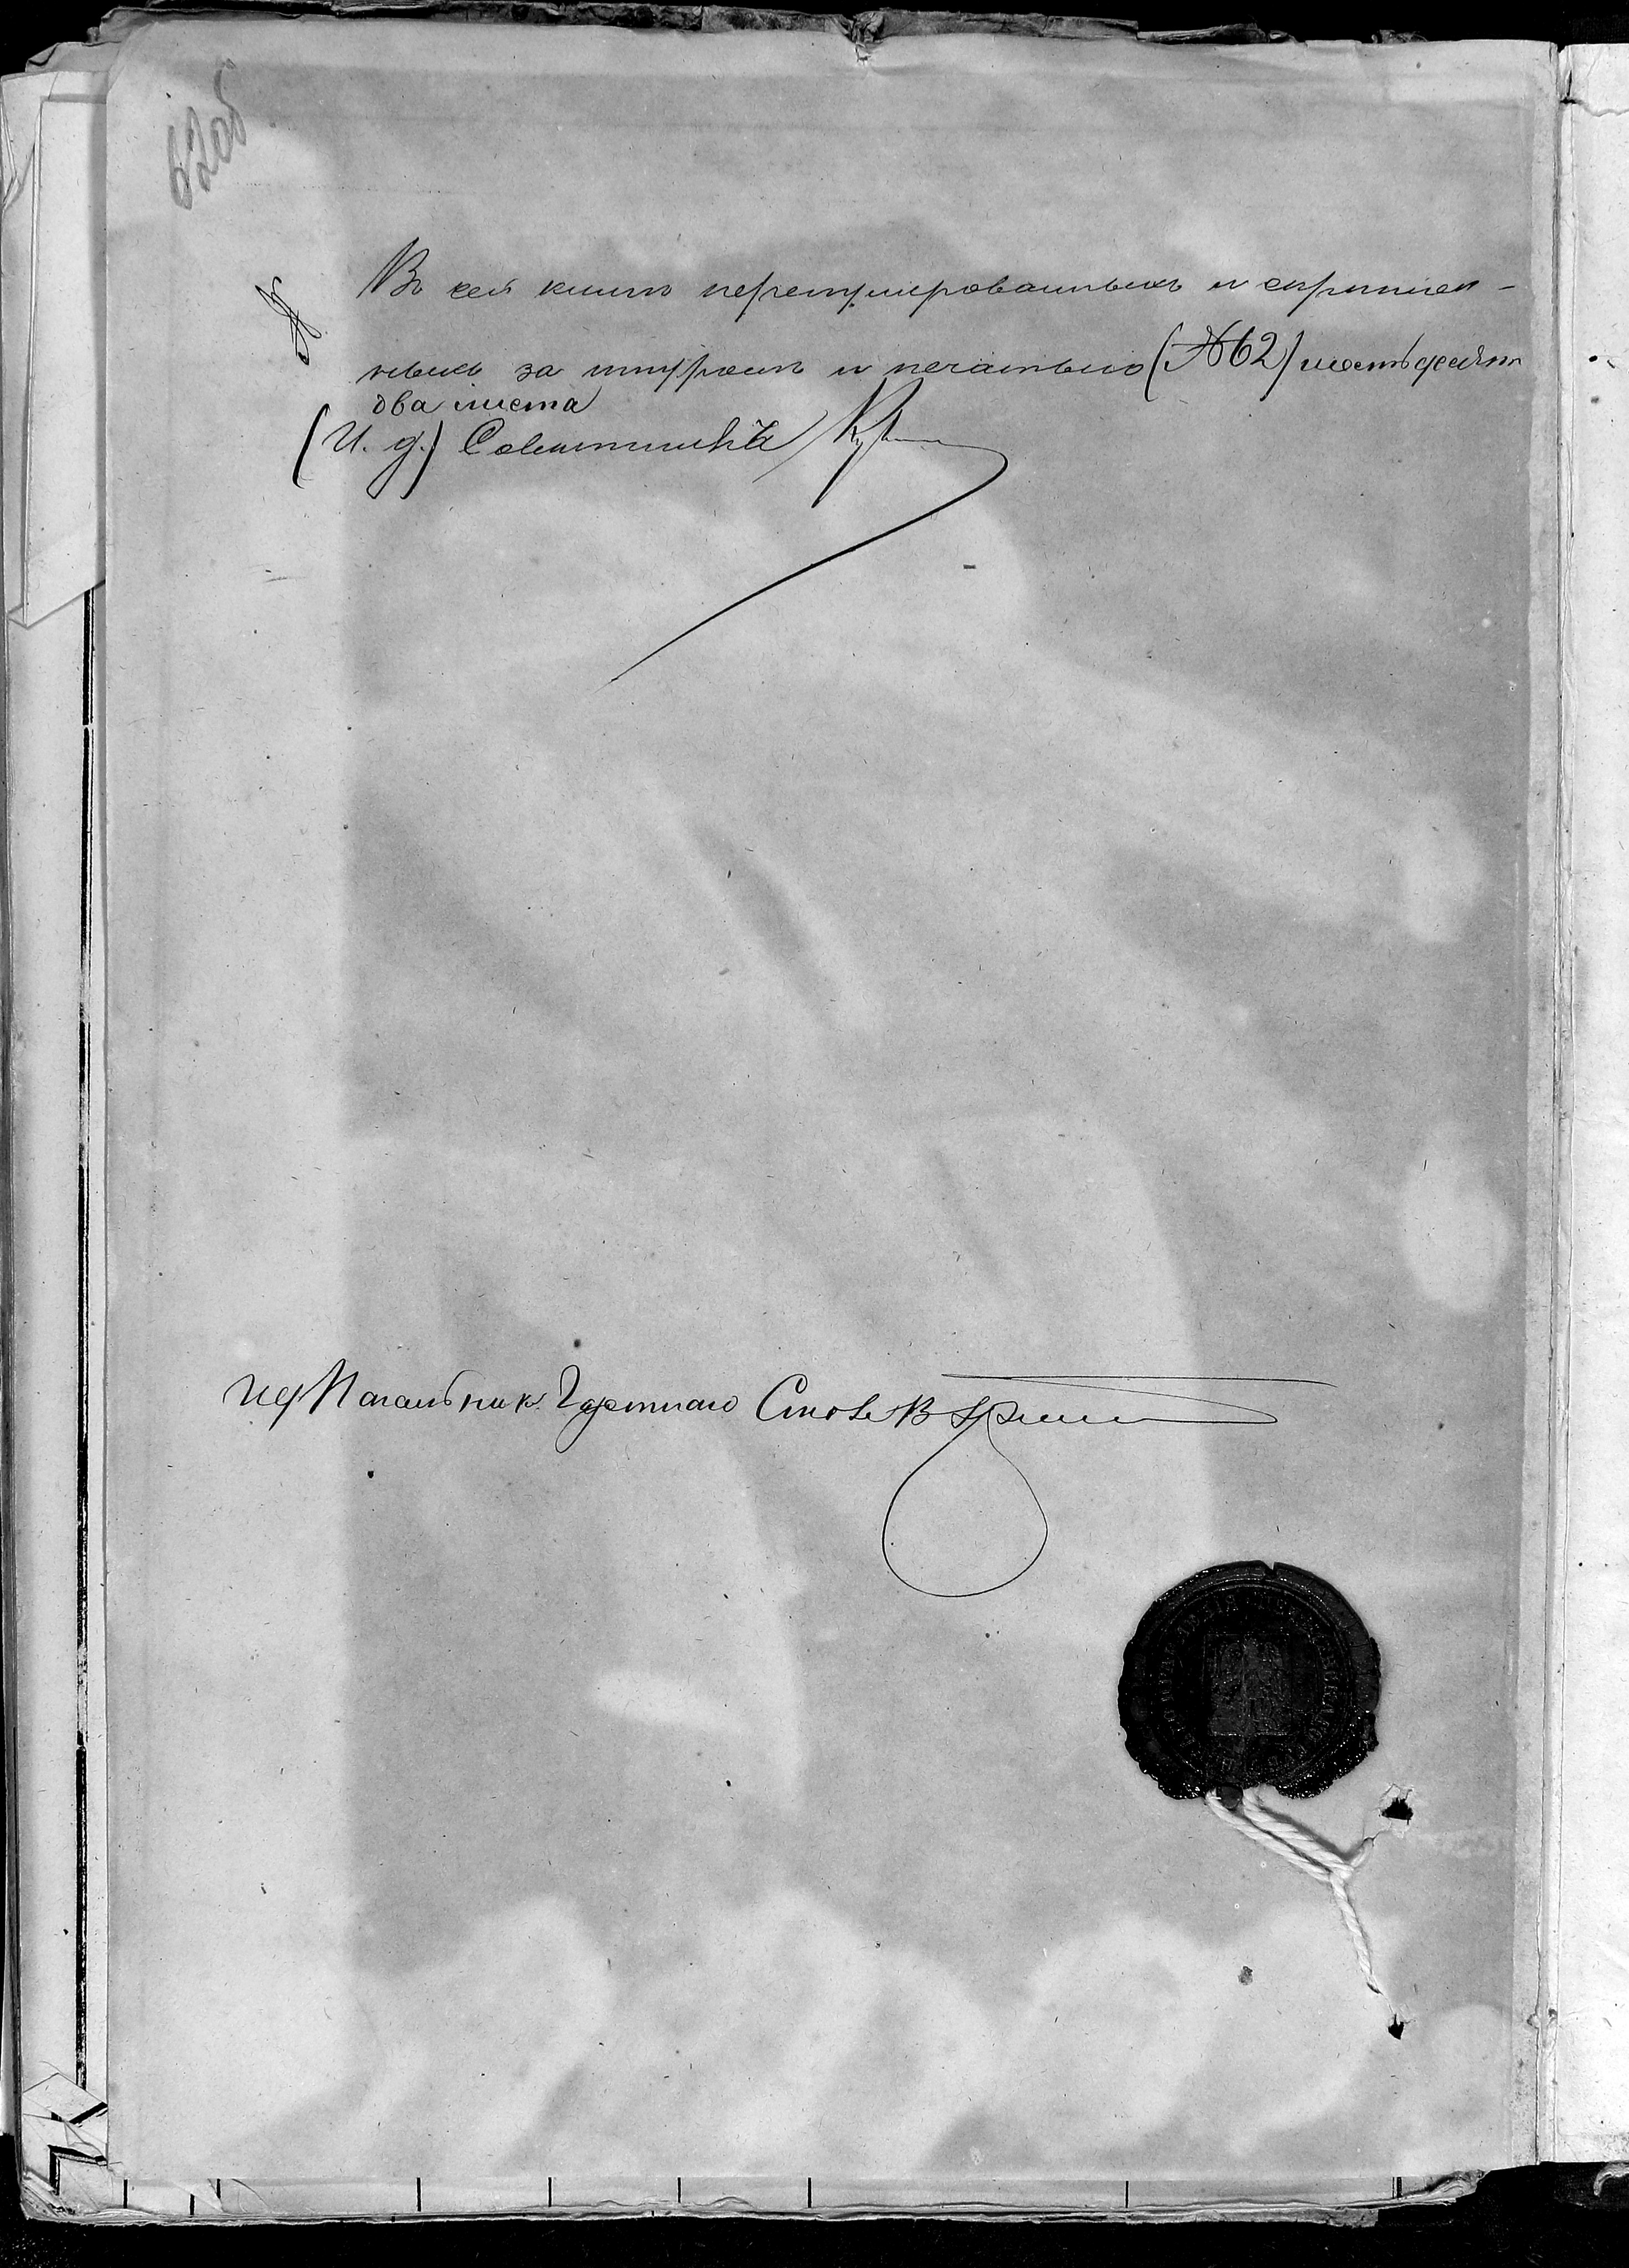 62об
Въ сей книгѣ перенумерованныхъ и скрѣплен-
ныхъ за шнуромъ и печатью (№ 62) шестьдесятъ
два листа
(И. д.) Совѣтника
И д Начальник. Счетнаго Стола